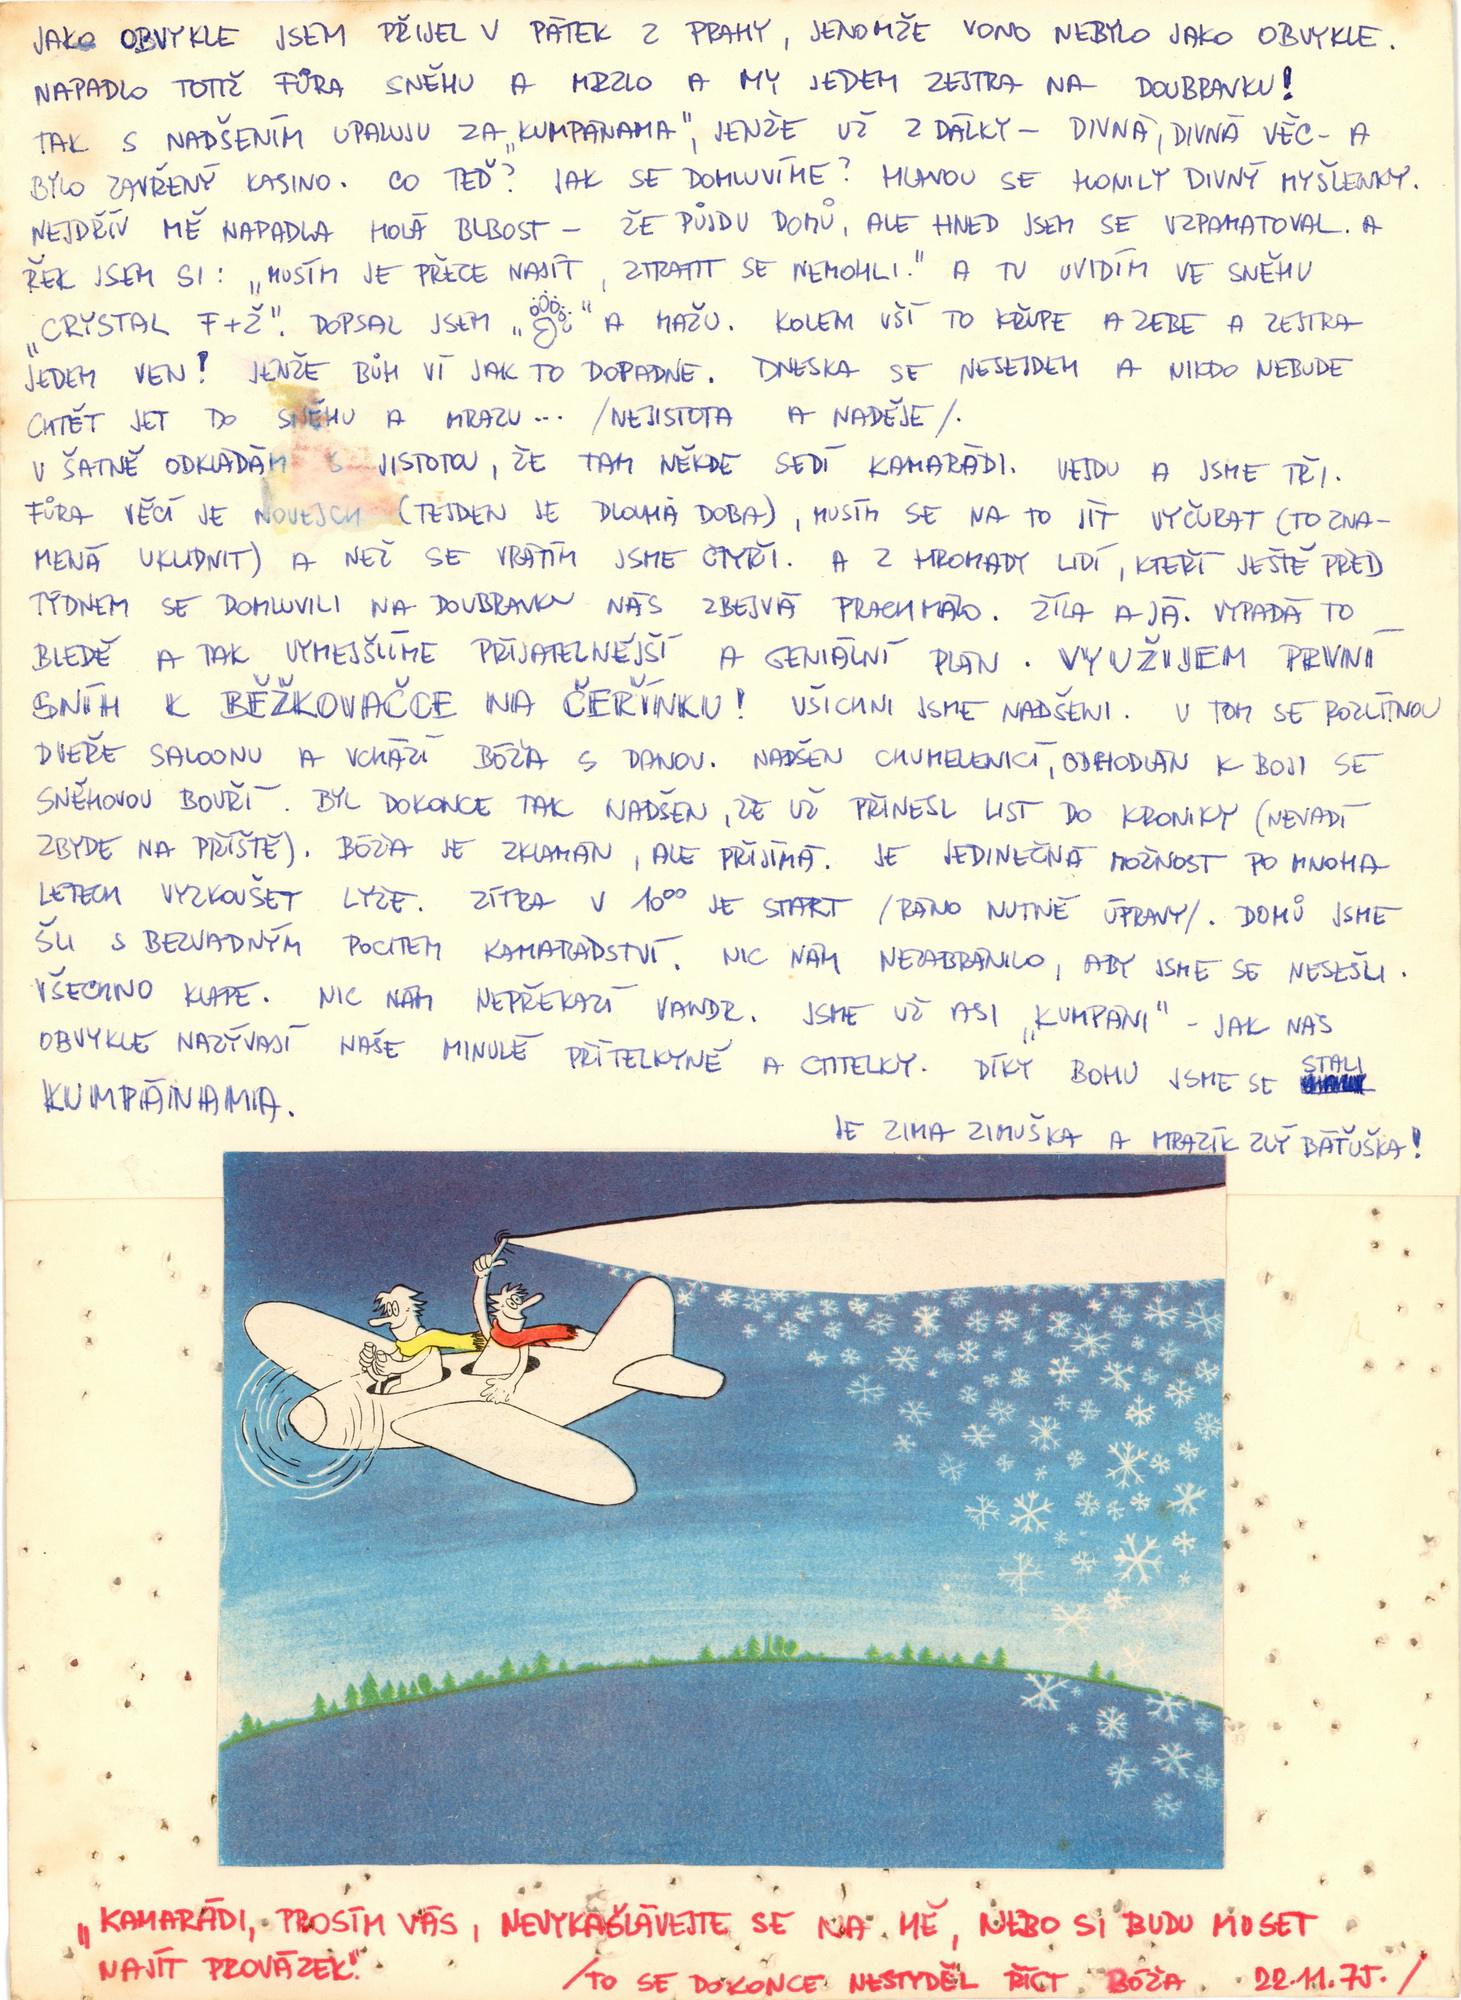 JAKO OBVYKLE JSEM PŘIJEL V PÁTEK Z PRAHY, JENOMŽE VONO NEBYLO JAKO OBVYKLE.
NAPADLO TOTIŽ FŮRA SNĚHU A MRZLO A MY JEDEM ZEJTRA NA DOUBRAVKU!
TAK S NADŠENÍM UPALUJU ZA „KUMPÁNAMA", JENŽE UŽ Z DÁLKY – DIVNÁ, DIVNÁ VĚC – A
BYLO ZAVŘENÝ KASINO. CO TEĎ? JAK SE DOMLUVÍME? HLAVOU SE HONILY DIVNÝ MYŠLENKY.
NEJDŘÍV MĚ NAPADLA HOLÁ BLBOST – ŽE PŮJDU DOMŮ, ALE HNED JSEM SE VZPAMATOVAL. A
ŘEK JSEM SI: „MUSÍM JE PŘECE NAJÍT, ZTRATIT SE NEMOHLI." A TU UVIDÍM VE SNĚHU
„CRYSTAL F+Ž". DOPSAL JSEM „ " A MAŽU. KOLEM UŠÍ TO KŘUPE A ZEBE A ZEJTRA
JEDEM VEN! JENŽE BŮH VÍ JAK TO DOPADNE. DNESKA SE NESEJDEM A NIKDO NEBUDE
CHTĚT JET DO SNĚHU A MRAZU... /NEJISTOTA A NADĚJE/.
V ŠATNĚ ODKLÁDÁM S JISTOTOU, ŽE TAM NĚKDE SEDÍ KAMARÁDI. VEJDU A JSME TŘI.
FŮRA VĚCÍ JE NOVEJCH (TEJDEN JE DLOUHÁ DOBA), MUSÍM SE NA TO JÍT VYČŮRAT (TO ZNA-
MENÁ UKLIDNIT) A NEŽ SE VRÁTÍM JSME ČTYŘI. A Z HROMADY LIDÍ, KTEŘÍ JEŠTĚ PŘED
TÝDNEM SE DOMLUVILI NA DOUBRAVKU NÁS ZBEJVÁ PRACHMÁLO. ŽÍLA A JÁ. VYPADÁ TO
BLEDĚ A TAK VYMEJŠLÍME PŘIJATELNĚJŠÍ A GENIÁLNÍ PLÁN. VYUŽIJEM PRVNÍ
SNÍH K BĚŽKOVAČCE NA ČEŘÍNKU! VŠICHNI JSME NADŠENI. V TOM SE ROZLÍTNOU
DVEŘE SALOONU A VCHÁZÍ BÓŽA S DANOU. NADŠEN CHUMELENICÍ, ODHODLÁN K BOJI SE
SNĚHOVOU BOUŘÍ. BYL DOKONCE TAK NADŠEN, ŽE UŽ PŘINESL LIST DO KRONIKY (NEVADÍ
ZBYDE NA PŘÍŠTĚ). BÓŽA JE ZKLAMÁN, ALE PŘIJÍMÁ. JE JEDINEČNÁ MOŽNOST PO MNOHA
LETECH VYZKOUŠET LYŽE. ZÍTRA V 10⁰⁰ JE START /RÁNO NUTNÉ ÚPRAVY/. DOMŮ JSME
ŠLI S BEZVADNÝM POCITEM KAMARÁDSTVÍ. NIC NÁM NEZABRÁNILO, ABY JSME SE NESEŠLI.
VŠECHNO KLAPE. NIC NÁM NEPŘEKAZÍ VANDR. JSME UŽ ASI „KUMPÁNI" – JAK NÁS
OBVYKLE NAZÝVAJÍ NAŠE MINULÉ PŘÍTELKYNĚ A CTITELKY. DÍKY BOHU JSME SE STALI
KUMPÁNAMA.
JE ZIMA ZIMUŠKA A MRAZÍK ZLÝ BÁŤUŠKA!
„KAMARÁDI, PROSÍM VÁS, NEVYKAŠLÁVEJTE SE NA MĚ, NEBO SI BUDU MUSET
NAJÍT PROVÁZEK."
/TO SE DOKONCE NESTYDĚL ŘÍCT BÓŽA 22.11.75./